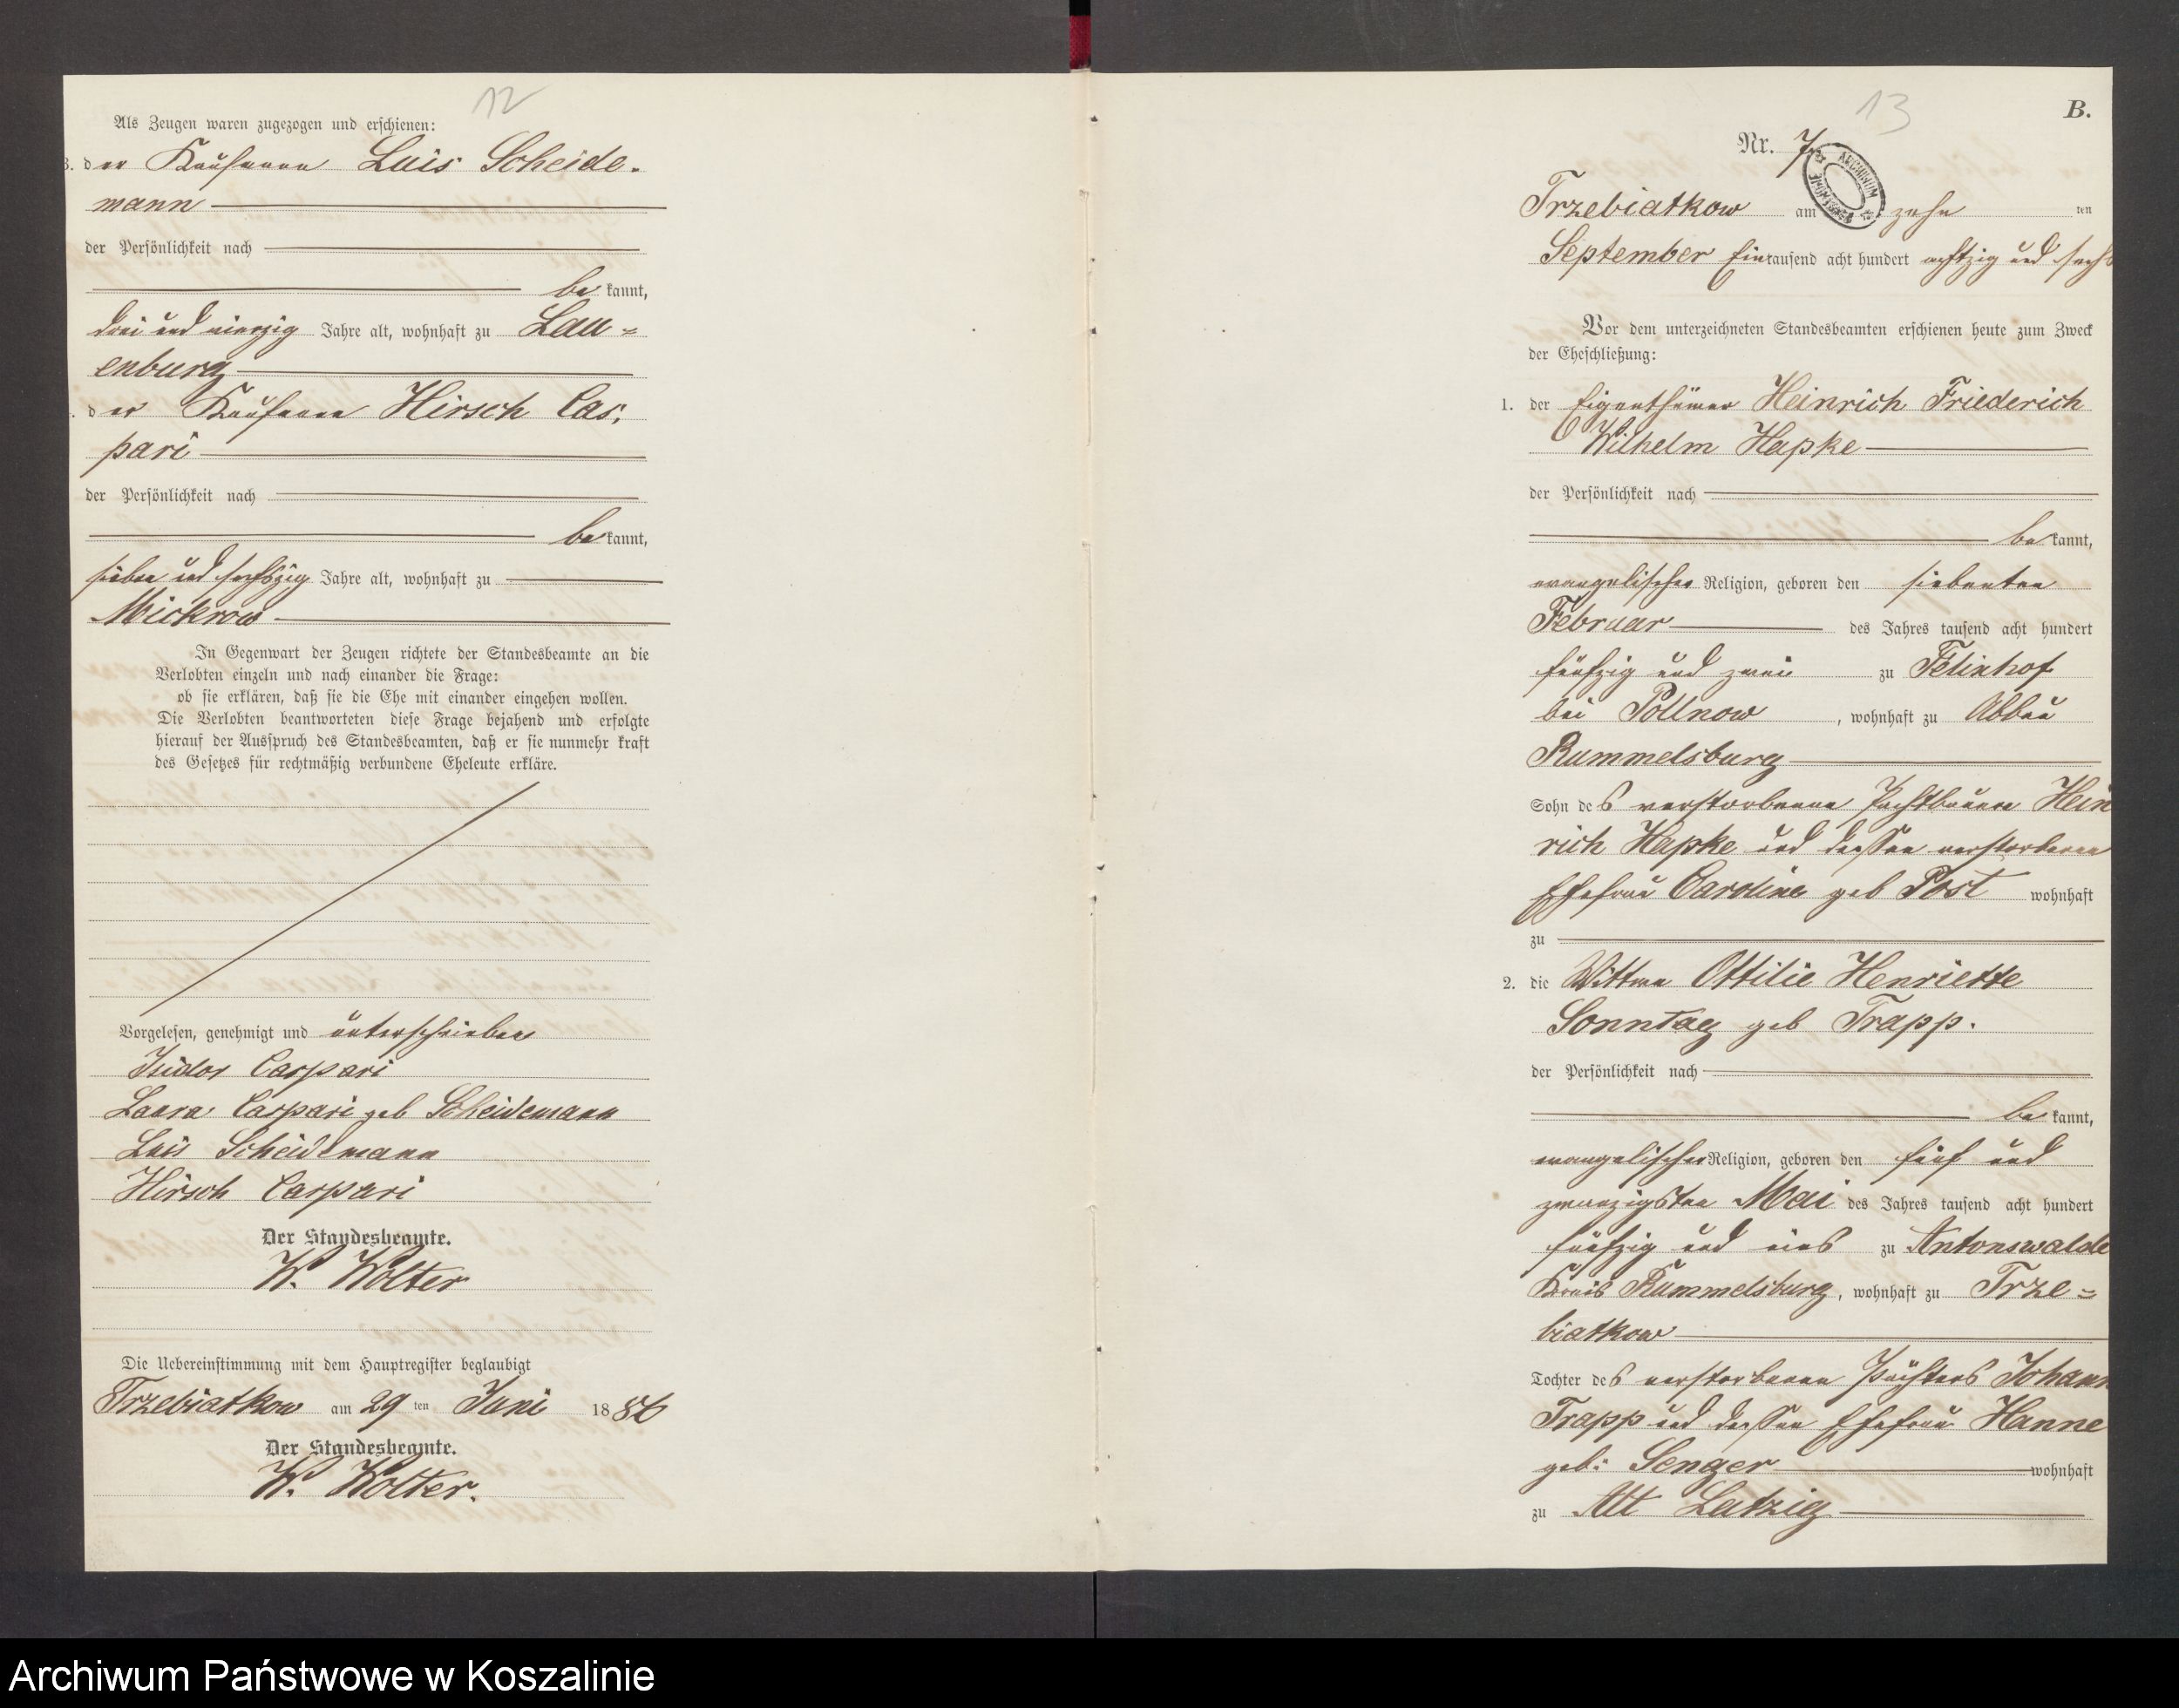 12
Als Zeugen waren zugezogen und erschienen:
3. der Kaufmann Luis Scheide-
mann
der Persönlichkeit nach
bekannt,
drei und vierzig Jahre alt, wohnhaft zu Lau=
enburg
der Kaufmann Hirsch Cas-
pari
der Persönlichkeit nach
bekannt,
sieben und sechszig Jahre alt, wohnhaft zu
Mickrow
In Gegenwart der Zeugen richtete der Standesbeamte an die
Verlobten einzeln und nach einander die Frage:
ob sie erklären, daß sie die Ehe mit einander eingehen wollen.
Die Verlobten beantworteten diese Frage bejahend und erfolgte
hierauf der Ausspruch des Standesbeamten, daß er sie nunmehr kraft
des Gesetzes für rechtmäßig verbundene Eheleute erkläre.
Vorgelesen, genehmigt und unterschrieben
Isidor Caspari
Laura Caspari geb Scheidemann
Luis Scheidemann
Hirsch Caspari
Der Standesbeamte.
W. Wolter
Die Uebereinstimmung mit dem Hauptregister beglaubigt
Trzebiatkow am 29 ten Juni 1886
Der Standesbeamte.
W. Wolter.
13
B.
Nr. 7
ARCHIWUM
Trzebiatkow am zehn ten
September Eintausend acht hundert achtzig und sechs
Vor dem unterzeichneten Standesbeamten erschienen heute zum Zweck
der Eheschließung:
1. der Eigenthümer Heinrich Friederich
Wilhelm Hapke
der Persönlichkeit nach
bekannt,
evangelischer Religion, geboren den siebenten
Februar des Jahres tausend acht hundert
fünfzig und zwei zu Felixhof
bei Pollnow, wohnhaft zu Abbau
Rummelsburg
Sohn des verstorbenen Pachtbauern Hein
rich Hapke und dessen verstorbenen
Ehefrau Caroline geb Post wohnhaft
zu
2. die Wittwe Ottilie Henriette
Sonntag geb Trapp.
der Persönlichkeit nach
bekannt,
evangelischer Religion, geboren den fünf und
zwanzigsten Mai des Jahres tausend acht hundert
fünfzig und eins zu Antonswalde
Kreis Rummelsburg, wohnhaft zu Trze=
biatkow
Tochter des verstorbenen Pächters Johann
Trapp und dessen Ehefrau Hanne
geb: Senger wohnhaft
zu Alt Latzig
Archiwum Państwowe w Koszalinie